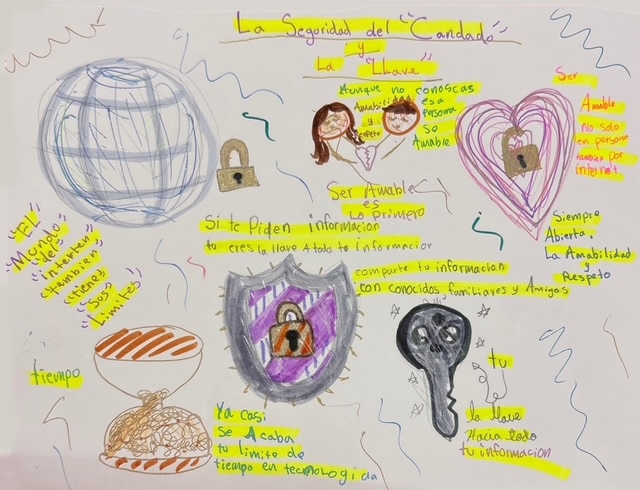 La Seguridad del "Candado"
y
La "Llave"
Aunque no conoscas
esa
persona
se
Amable
Amabilidad
y
respeto
Ser
Amable
no solo
en persona
tambien por
internet
Ser Amable
es
Lo primero
Siempre
Abierta.
La Amabilidad
y
Respeto
Si te Piden informacion
tu eres la llave A toda tu informacion
El
Mundo
del
intenten
tambien
tienes
Sos
Limites
comparte tu informacion
con conocidos, familiares y Amigos
tiempo
Ya casi
Se Acaba
tu limite de
tiempo en tecnologida
tu
la llave
Hacia todo
tu informacion